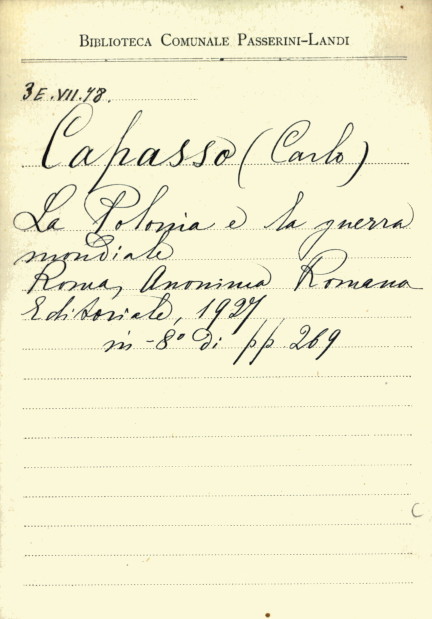 BIBLIOTECA COMUNALE PASSERINI-LANDI
3E.VII.48.
Capasso (Carlo)
La Polonia e la guerra
mondiale
Roma, Anonima Romana
Editoriale, 1927
in -8° di pp 269